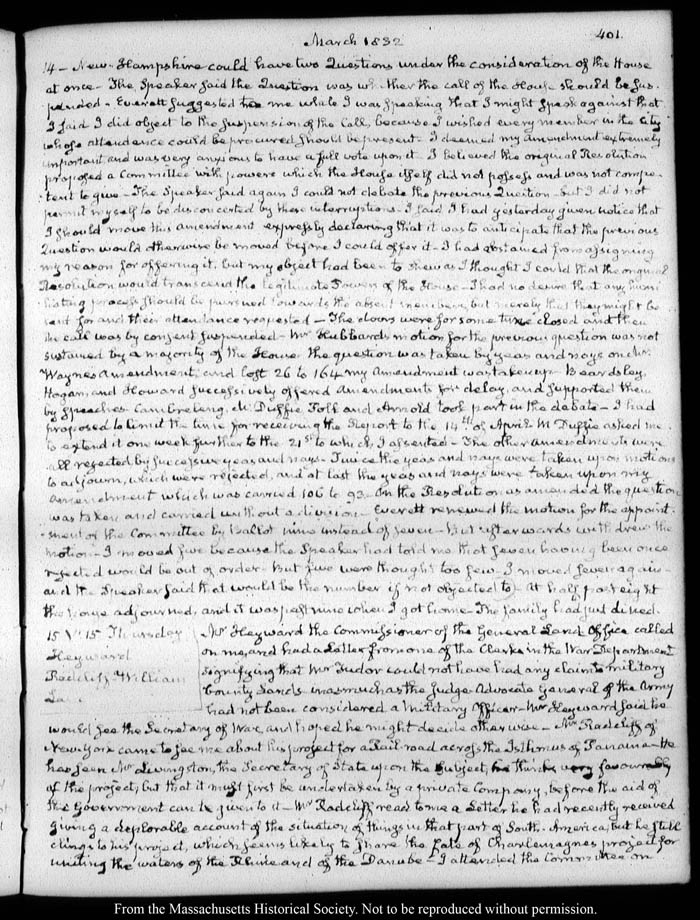 March 1832
401.
14 – New-Hampshire could have two Questions under the consideration of the House
at once – The Speaker said the Question was whether the call of the House should be sus-
pended – Everett suggested to me while I was speaking that I might speak against that
I said I did object to the suspension of the Call, because I wished every member in the City
whose attendance could be procured should be present. I deemed my amendment extremely
important and was very anxious to have a full vote upon it. I believed the original Resolution
proposed a Committee with powers which the House itself did not possess and was not compe-
tent to give – The Speaker said again I could not debate the previous Question – but I did not
permit myself to be disconcerted by these interruptions – I said I had yesterday given notice that
I should move this amendment expressly declaring that it was to anticipate that the previous
Question would otherwise be moved before I could offer it – I had abstained from assigning
my reason for offering it, but my object had been to shew as I thought I could that the original
Resolution would transcend the legitimate Powers of the House – I had no desire that any humi-
liating process should be pursued towards the absent members, but merely that they might be
sent for and their attendance requested – The doors were for some time closed and then
the call was by consent suspended – Mr Hubbard's motion for the previous question was not
sustained by a majority of the House. the question was taken by yeas and nays on Mr
Wayne's Amendment, and lost 26 to 164 my Amendment was taken up – Beardsley,
Hogan, and Howard successively offered Amendments for delay, and supported them
by speeches – Cambreleng, McDuffie Polk and Arnold took part in the debate – I had
proposed to limit the time for receiving the Report to the 14th of April McDuffie asked me
to extend it one week further to the 21st to which I assented – The other amendments were
all rejected by successive yeas and nays – Twice the yeas and nays were taken upon motions
to adjourn, which were rejected, and at last the yeas and nays were taken upon my
amendment which was carried 106 to 93. On the Resolution as amended the question
was taken and carried without a division – Everett renewed the motion for the appoint-
ment of the Committee by Ballot nine instead of seven – but afterwards withdrew the
motion – I moved five because the Speaker had told me that seven having been once
rejected would be out of order – But five were thought too few – I moved seven again –
and the Speaker said that would be the number if not objected to – At half past eight
the house adjourned, and it was past nine when I got home – The family had just dined.
15 V. 15. Thursday
Heyward
Radcliff William
Mr Heyward the Commissioner of the General Land Office called
on me, and had a Letter from one of the Clerks in the War Department
signifying that Mr Tudor could not have had any claim to military
Bounty Lands inasmuch as the Judge Advocate General of the Army
had not been considered a military Officer – Mr Heyward said he
would see the Secretary of War, and hoped he might decide otherwise – Mr Radcliff of
New York came to see me about his project for a Rail road across the Isthmus of Panama – He
has seen Mr Livingston, the Secretary of State upon the subject, he thinks very favourably
of the project, but that it must first be undertaken by a private Company, before the aid of
the Government can be given to it – Mr Radcliff read to me a Letter he had recently received
giving a deplorable account of the situation of things in that part of South-America, but he still
clings to his project, which seems likely to share the fate of Charlemagne's project for
uniting the waters of the Rhine and of the Danube – I attended the Committee on
From the Massachusetts Historical Society. Not to be reproduced without permission.